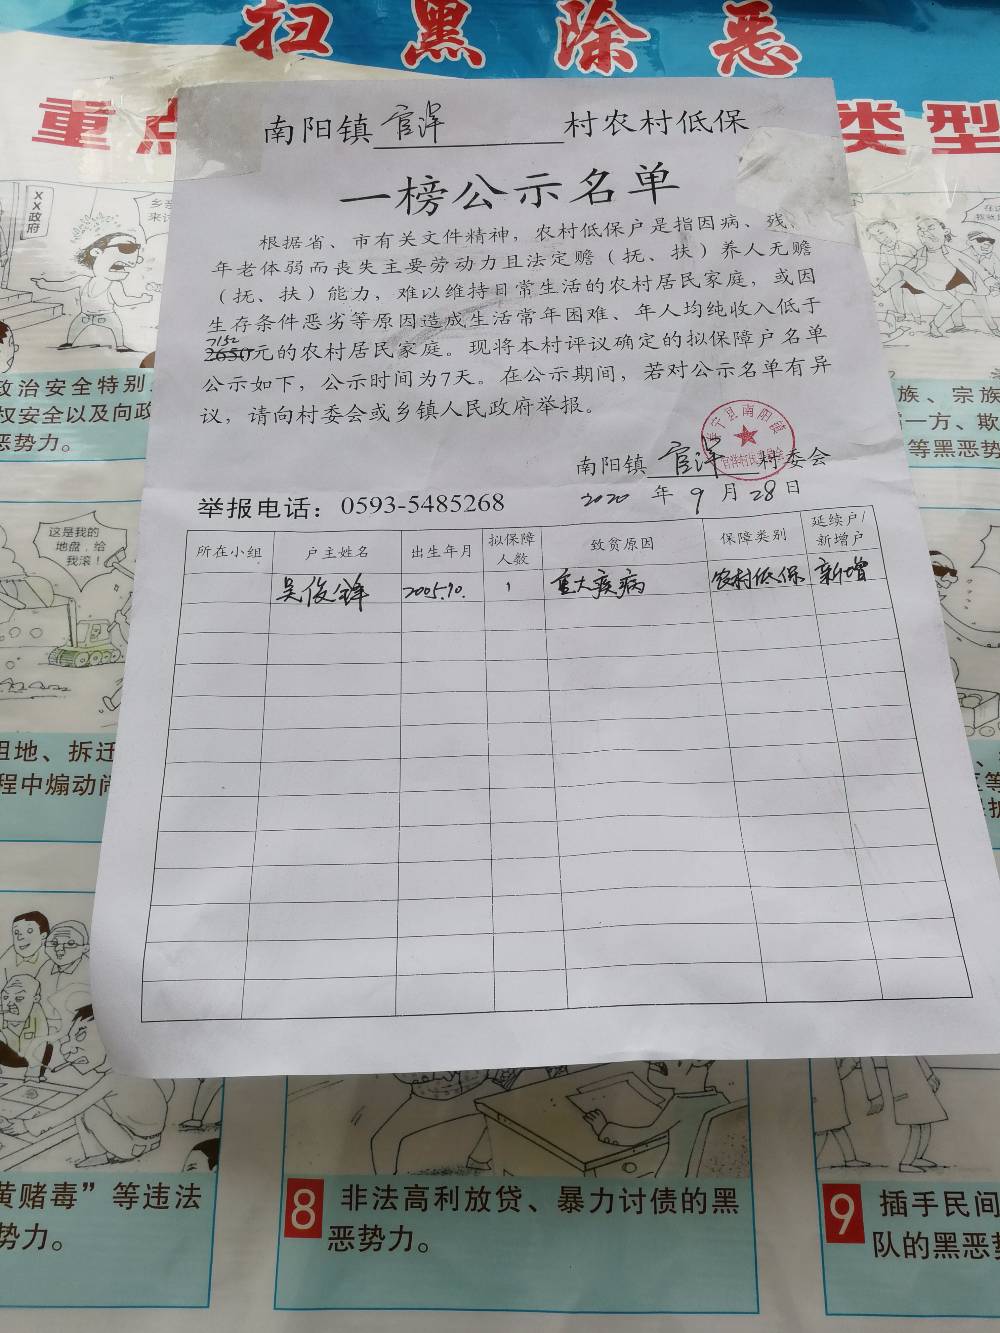 扫黑除恶
重点
类型
XX政府
南阳镇官洋村农村低保
一榜公示名单
根据省、市有关文件精神，农村低保户是指因病、残、
年老体弱而丧失主要劳动力且法定赡（抚、扶）养人无赡
（抚、扶）能力，难以维持日常生活的农村居民家庭，或因
生存条件恶劣等原因造成生活常年困难、年人均纯收入低于
7152
2650元的农村居民家庭。现将本村评议确定的拟保障户名单
公示如下，公示时间为7天。在公示期间，若对公示名单有异
议，请向村委会或乡镇人民政府举报。
南阳镇官洋村委会
2020年9月28日
举报电话：0593-5485268
所在小组 户主姓名 出生年月 拟保障人数 致贫原因 保障类别 延续户/新增户
吴俊锋 2005.10. 1 重大疾病 农村低保 新增
政治安全特别
权安全以及向政
恶势力。
族、宗族
一方、欺
等黑恶势
这是我的
地盘，给
我滚！
租地、拆迁
程中煽动闹
黄赌毒”等违法
势力。
8 非法高利放贷、暴力讨债的黑
恶势力。
9 插手民间
队的黑恶势